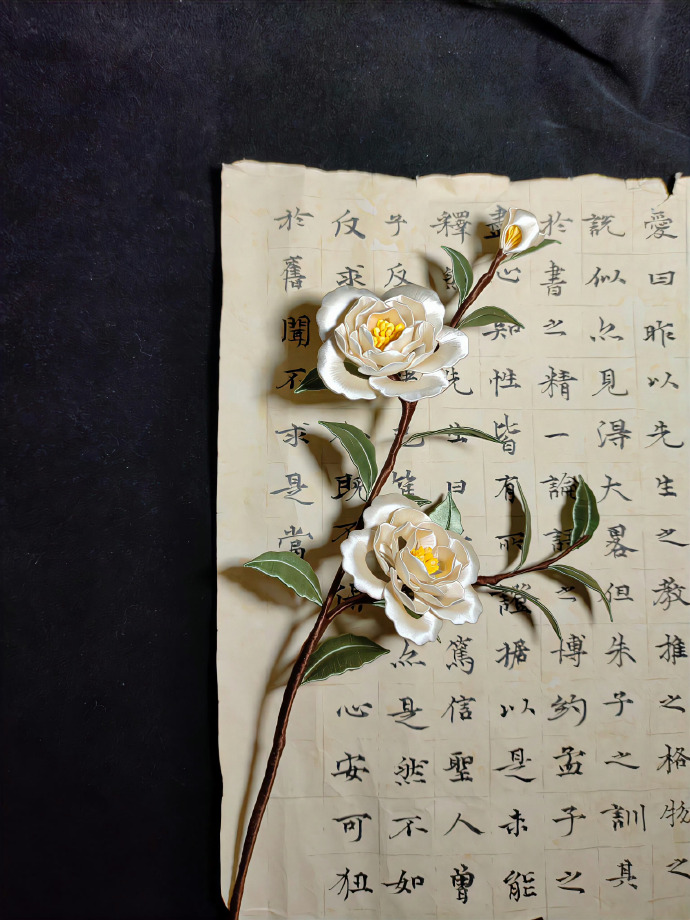 愛曰昨以先生之教推之格物之
説似亦見得大畧但朱子之訓其
於書之精一論語之博約孟子之
盡心知性皆有所證據以是未能
釋先生曰篤信聖人曾
子反亦是然不如
反求既不得心安可狃
於舊聞不求是當